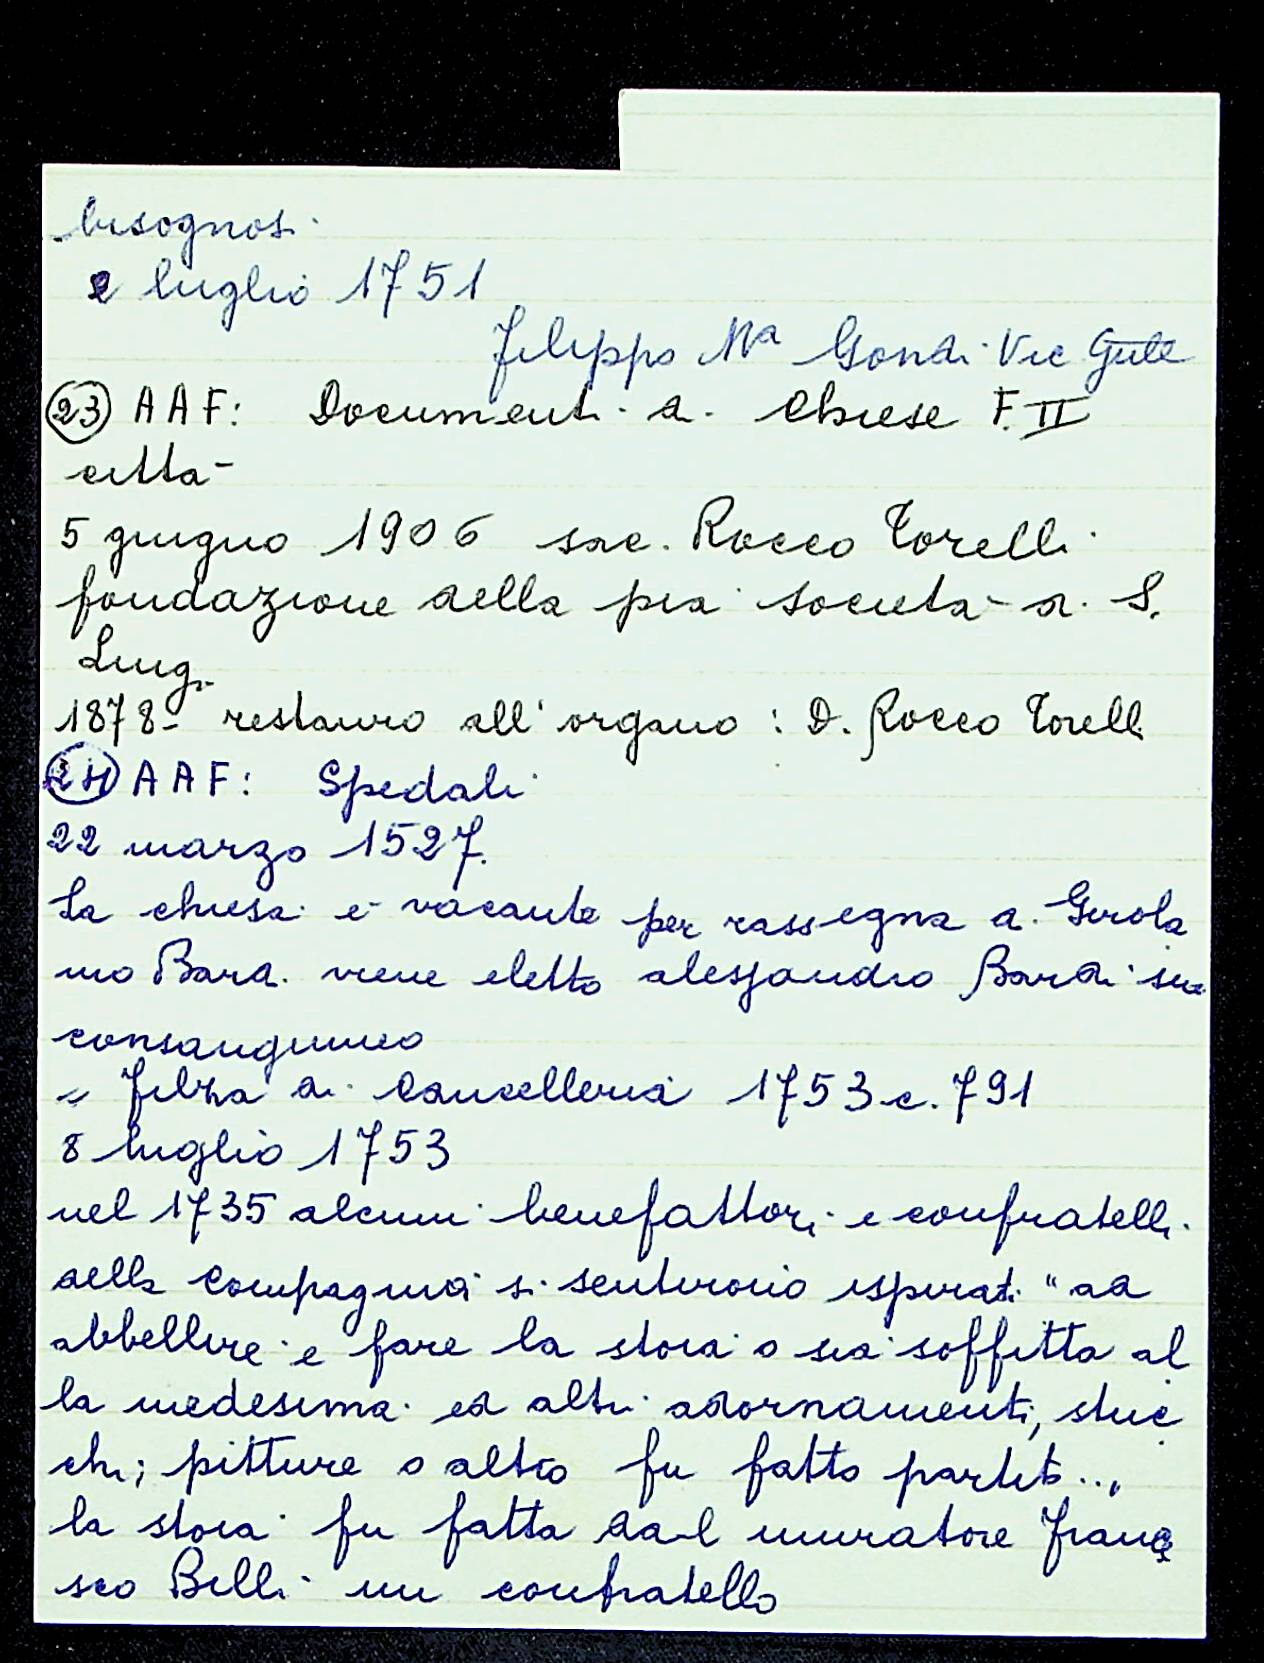 bisognosi
2 luglio 1751
Filippo Ma Gondi Vic Gnle
23 AAF: Documenti di Chiese F. II
città
5 giugno 1906 sac. Rocco Torelli
fondazione della pia società di S.
Luigi
1878 - restauro all'organo: D. Rocco Torelli
24 AAF: Spedali
22 marzo 1527.
La chiesa è vacante per rassegna di Girola
mo Bardi viene eletto Alessandro Bardi suo
consanguineo
" Filza di Cancelleria 1753 c. 791
8 luglio 1753
nel 1735 alcuni benefattori e confratelli
della Compagnia si sentirono ispirati "ad
abbellire e fare la stoia o sia soffitta al
la medesima ed altri adornamenti, stuc
chi; pitture o altro fu fatto partito...,
la stoia fu fatta dal muratore France
sco Billi un confratello